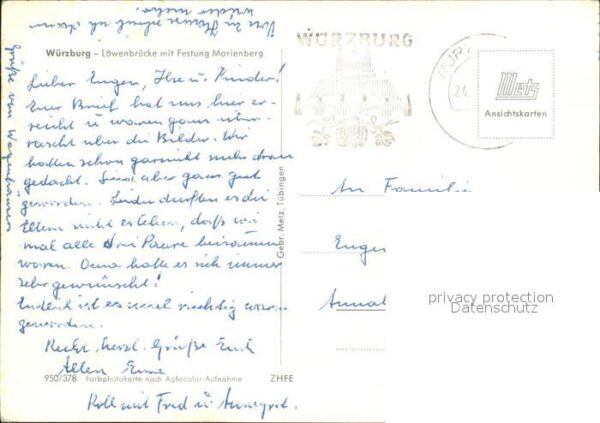 Von zu Hause schreib ich dann
wieder mehr.
Würzburg – Löwenbrücke mit Festung Marienberg
Lieber Eugen, Ilse u. Kinder!
Euer Brief hat uns hier er-
reicht u waren ganz über-
rascht über die Bilder. Wir
hatten schon garnicht mehr dran
gedacht. Sind aber ganz gut
geworden. Leider durften es die
Eltern nicht erleben, daß wir
mal alle drei Paare beisammen
waren. Oma hatte es sich immer
sehr gewünscht!
Endlich ist es mal richtig warm
geworden.
Recht herzl. Grüße Euch
Allen Eure
Roll mit Fred u.
Grüße von
950/378 Farbphotokarte nach Agfacolor-Aufnahme ZHFE
Gebr. Metz, Tübingen
WÜRZBURG
Metz
Ansichtskarten
An Familie
Euge
privacy protection
Datenschutz